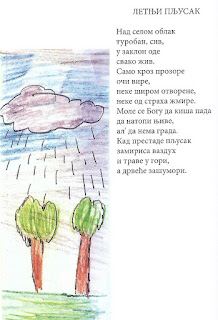 ЛЕТЊИ ПЉУСАК
Над селом облак
туробан, сив,
у заклон оде
свако жив.
Само кроз прозоре
очи вире,
неке широм отворене,
неке од страха жмире.
Моле се Богу да киша пада
да натопи њиве,
ал' да нема града.
Кад престаде пљусак
замириса ваздух
и траве у гори,
а дрвеће зашумори.